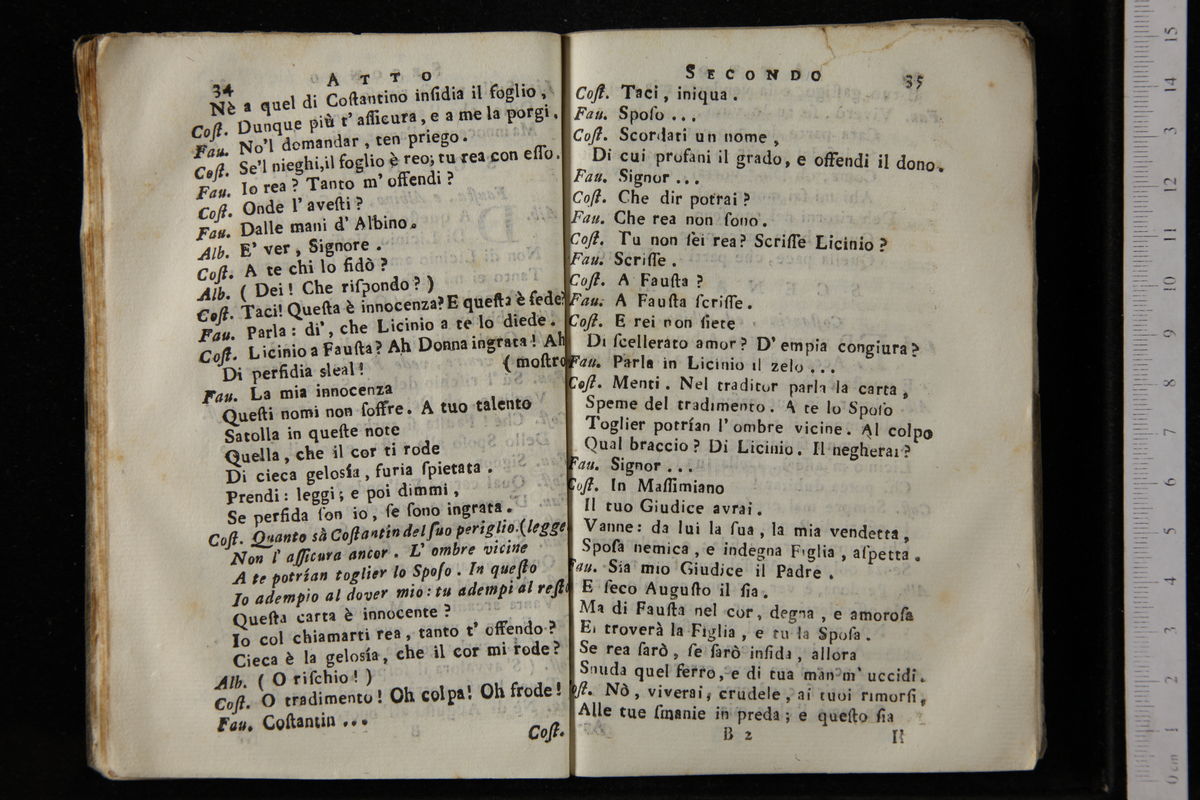 34 ATTO
Nè a quel di Coſtantino inſidia il foglio,
Coſt. Dunque più t' aſſicura, e a me la porgi.
Fau. No'l domandar, ten priego.
Coſt. Se'l nieghi, il foglio è reo; tu rea con eſſo.
Fau. Io rea? Tanto m' offendi?
Coſt. Onde l' aveſti?
Fau. Dalle mani d' Albino.
Alb. E' ver, Signore.
Coſt. A te chi lo fidò?
Alb. (Dei! Che riſpondo?)
Coſt. Taci! Queſta è innocenza? E queſta è fede?
Fau. Parla: di', che Licinio a te lo diede.
Coſt. Licinio a Fauſta? Ah Donna ingrata! Ah
Di perfidia sleal! (moſtro
Fau. La mia innocenza
Queſti nomi non ſoffre. A tuo talento
Satolla in queſte note
Quella, che il cor ti rode
Di cieca geloſía, furia ſpietata.
Prendi: leggi; e poi dimmi,
Se perfida ſon io, ſe ſono ingrata.
Coſt. Quanto sà Coſtantin del ſuo periglio. (legge
Non l' aſſicura ancor. L' ombre vicine
A te potrían toglier lo Spoſo. In queſto
Io adempio al dover mio: tu adempi al reſto
Queſta carta è innocente?
Io col chiamarti rea, tanto t' offendo?
Cieca è la geloſía, che il cor mi rode?
Alb. (O riſchio!)
Coſt. O tradimento! Oh colpa! Oh frode!
Fau. Coſtantin ...
Coſt.
SECONDO 35
Coſt. Taci, iniqua.
Fau. Spoſo ...
Coſt. Scordati un nome,
Di cui profani il grado, e offendi il dono.
Fau. Signor ...
Coſt. Che dir potrai?
Fau. Che rea non ſono.
Coſt. Tu non ſei rea? Scriſſe Licinio?
Fau. Scriſſe.
Coſt. A Fauſta?
Fau. A Fauſta ſcriſſe.
Coſt. E rei non ſiete
Di ſcellerato amor? D' empia congiura?
Fau. Parla in Licinio il zelo ...
Coſt. Menti. Nel traditor parla la carta,
Speme del tradimento. A te lo Spoſo
Toglier potrían l' ombre vicine. Al colpo
Qual braccio? Di Licinio. Il negherai?
Fau. Signor ...
Coſt. In Maſſimiano
Il tuo Giudice avrai.
Vanne: da lui la ſua, la mia vendetta,
Spoſa nemica, e indegna Figlia, aſpetta.
Fau. Sia mio Giudice il Padre.
E ſeco Auguſto il ſia.
Ma di Fauſta nel cor, degna, e amoroſa
Ei troverà la Figlia, e tu la Spoſa.
Se rea ſarò, ſe ſarò infida, allora
Snuda quel ferro, e di tua man m' uccidi.
Coſt. Nò, viverai, crudele, ai tuoi rimorſi,
Alle tue ſmanie in preda; e queſto ſia
B 2 Il